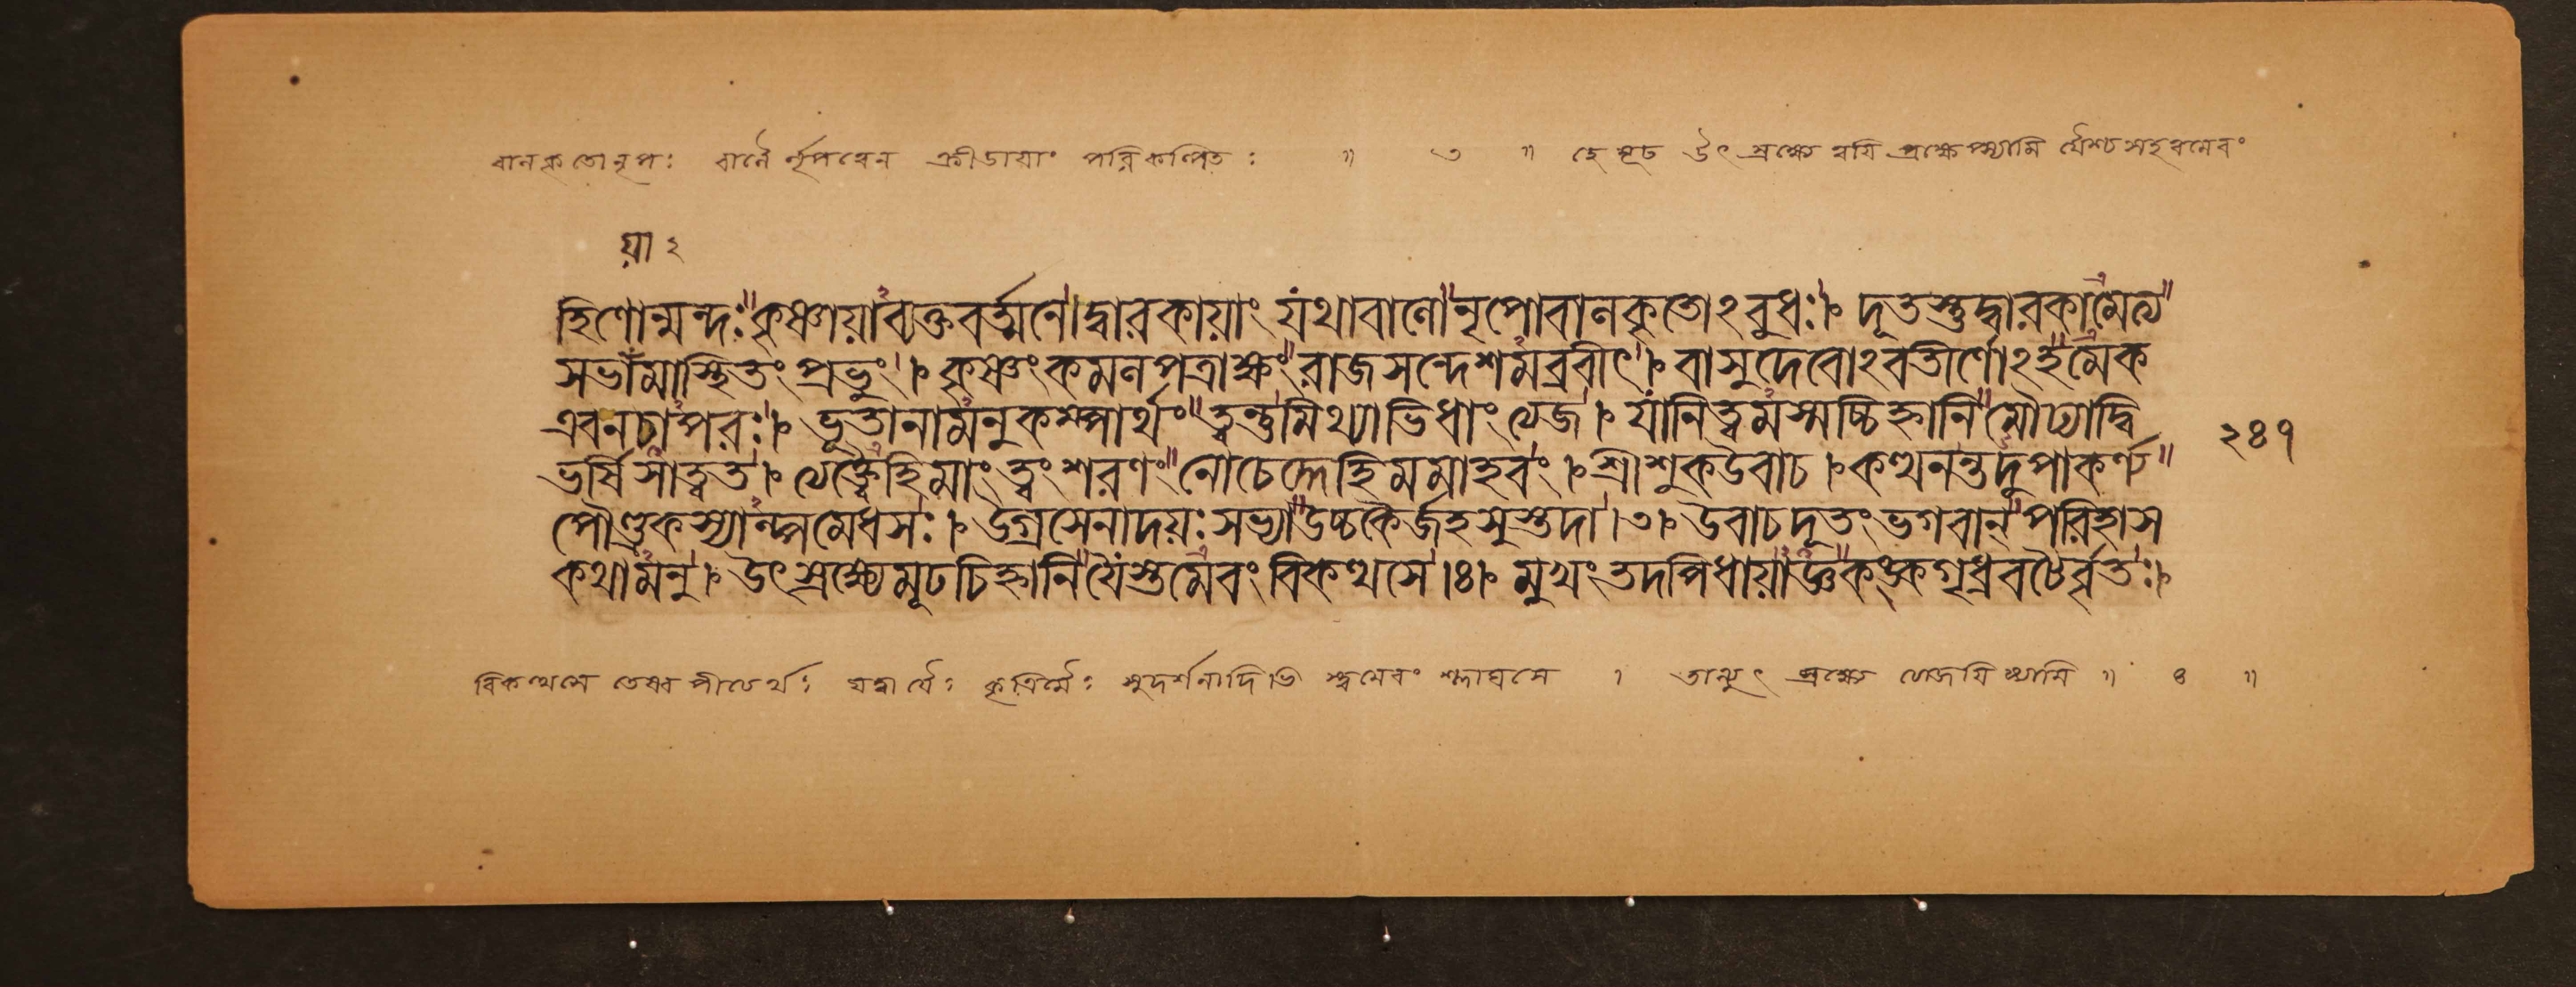 বানকৃতো নৃপঃ বালৈ র্নৃপত্বেন ক্রীডায়াং পরিকল্পিতঃ ॥ ৩ ॥ হে মূঢ উৎস্রক্ষ্যে ত্বয়ি প্রক্ষেপ্স্যামি যৈস্ত্বং সহ ত্বমেবং
য়া ২
হিণোন্মন্দঃ কৃষ্ণায়াব্যক্তবর্ত্মনে। দ্বারকায়াং যথাবানো নৃপোবানকৃতোঽবুধঃ। দূতস্তুদ্বারকামেত্য
সভামাস্থিতং প্রভুং। কৃষ্ণংকমনপত্রাক্ষং রাজসন্দেশমব্রবীৎ। বাসুদেবোঽবতীর্ণোঽহমেক
এবনচাপরঃ। ভূতানামনুকম্পার্থং ত্বন্তুমিথ্যাভিধাং ত্যেজ। যানিত্বমস্মচ্চিহ্নানি মৌঢ্যাদ্বি
ভর্ষিসাত্বত। ত্যেক্ত্বৈহিমাং ত্বং শরণং নোচেদ্দেহিমমাহবং। শ্রীশুকউবাচ। কত্থনন্তদুপাকর্ণ্য
পৌণ্ড্রকস্যাল্পমেধসঃ। উগ্রসেনাদয়ঃ সভ্যা উচ্চকৈর্জহসুস্তদা।৩। উবাচদূতং ভগবান্ পরিহাস
কথামনু। উৎস্রক্ষ্যেমূঢচিহ্নানি যৈস্ত্বমেবং বিকত্থসে।৪। মুখং তদপিধায়াজ্ঞ কঙ্কগৃধ্রবটৈর্বৃতঃ।
২৪৭
বিকত্থসে তেষব পীতের্থঃ যদ্বা যৈঃ কৃত্রিমৈঃ সুদর্শনাদিভি স্ত্বমেবং শ্লাঘসে । তান্যুৎস্রক্ষ্যে ত্যেজয়িষ্যামি ॥ ৪ ॥